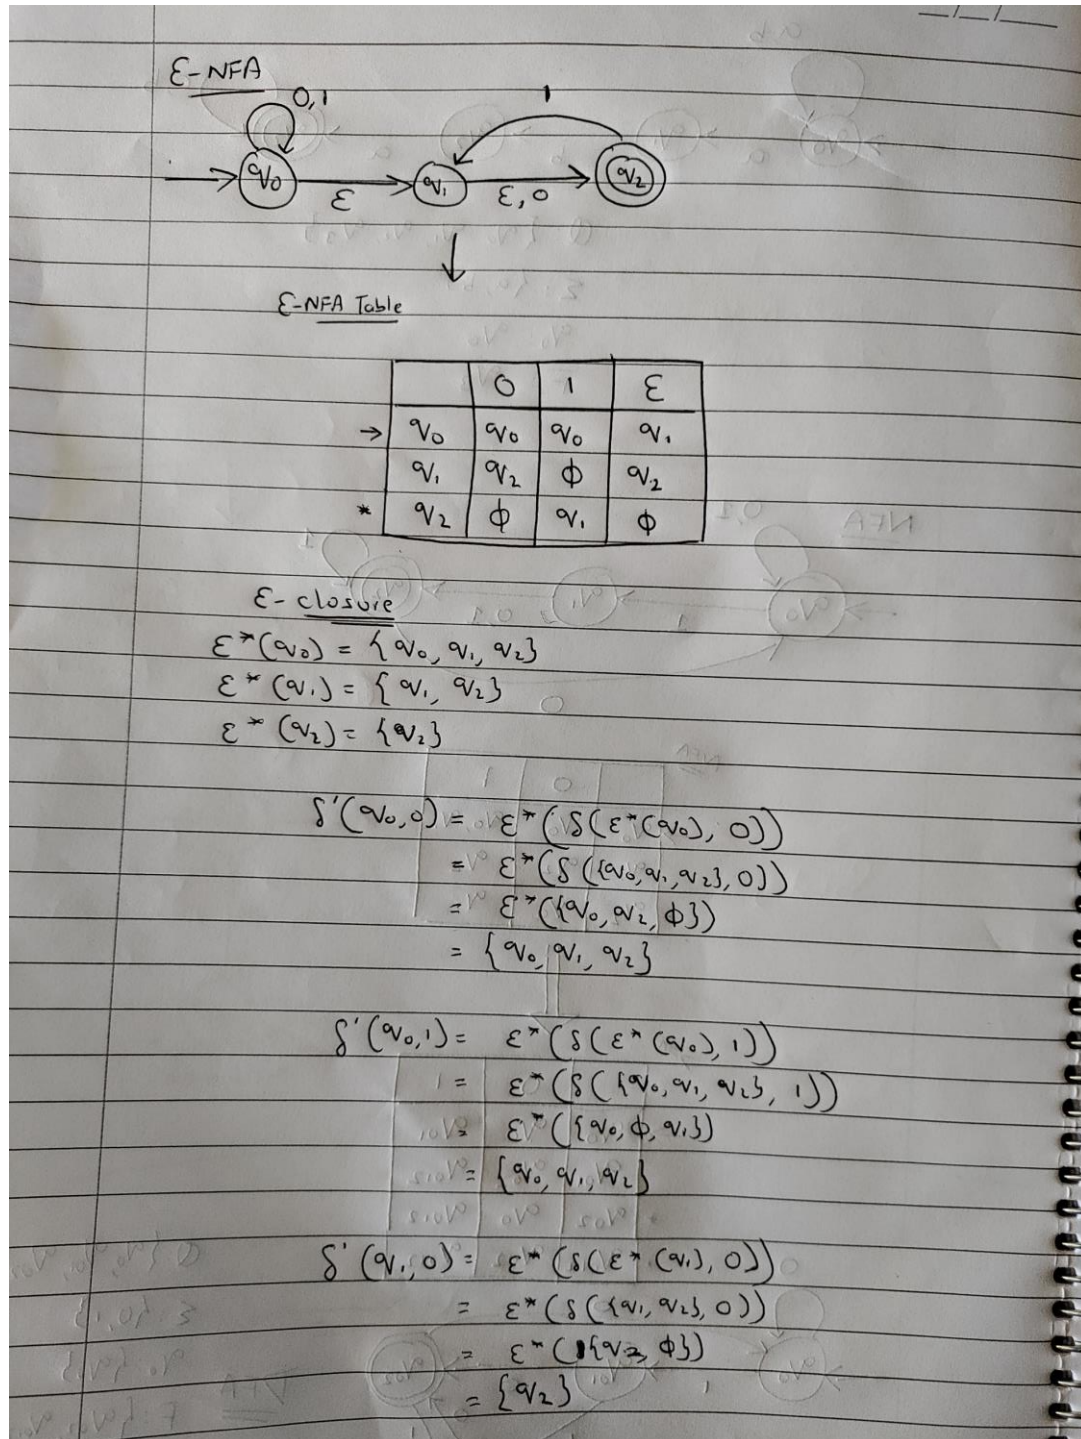 ε-NFA
0,1
1
q0 ε q1 ε,0 q2
ε-NFA Table
0 1 ε
→ q0 q0 q0 q1
q1 q2 ϕ q2
* q2 ϕ q1 ϕ
ε-closure
ε*(q0) = {q0, q1, q2}
ε*(q1) = {q1, q2}
ε*(q2) = {q2}
δ'(q0,0) = ε*(δ(ε*(q0), 0))
= ε*(δ({q0,q1,q2},0))
= ε*({q0,q2,ϕ})
= {q0,q1,q2}
δ'(q0,1) = ε*(δ(ε*(q0),1))
= ε*(δ({q0,q1,q2},1))
= ε*({q0,ϕ,q1})
= {q0,q1,q2}
δ'(q1,0) = ε*(δ(ε*(q1),0))
= ε*(δ({q1,q2},0))
= ε*({q2,ϕ})
= {q2}